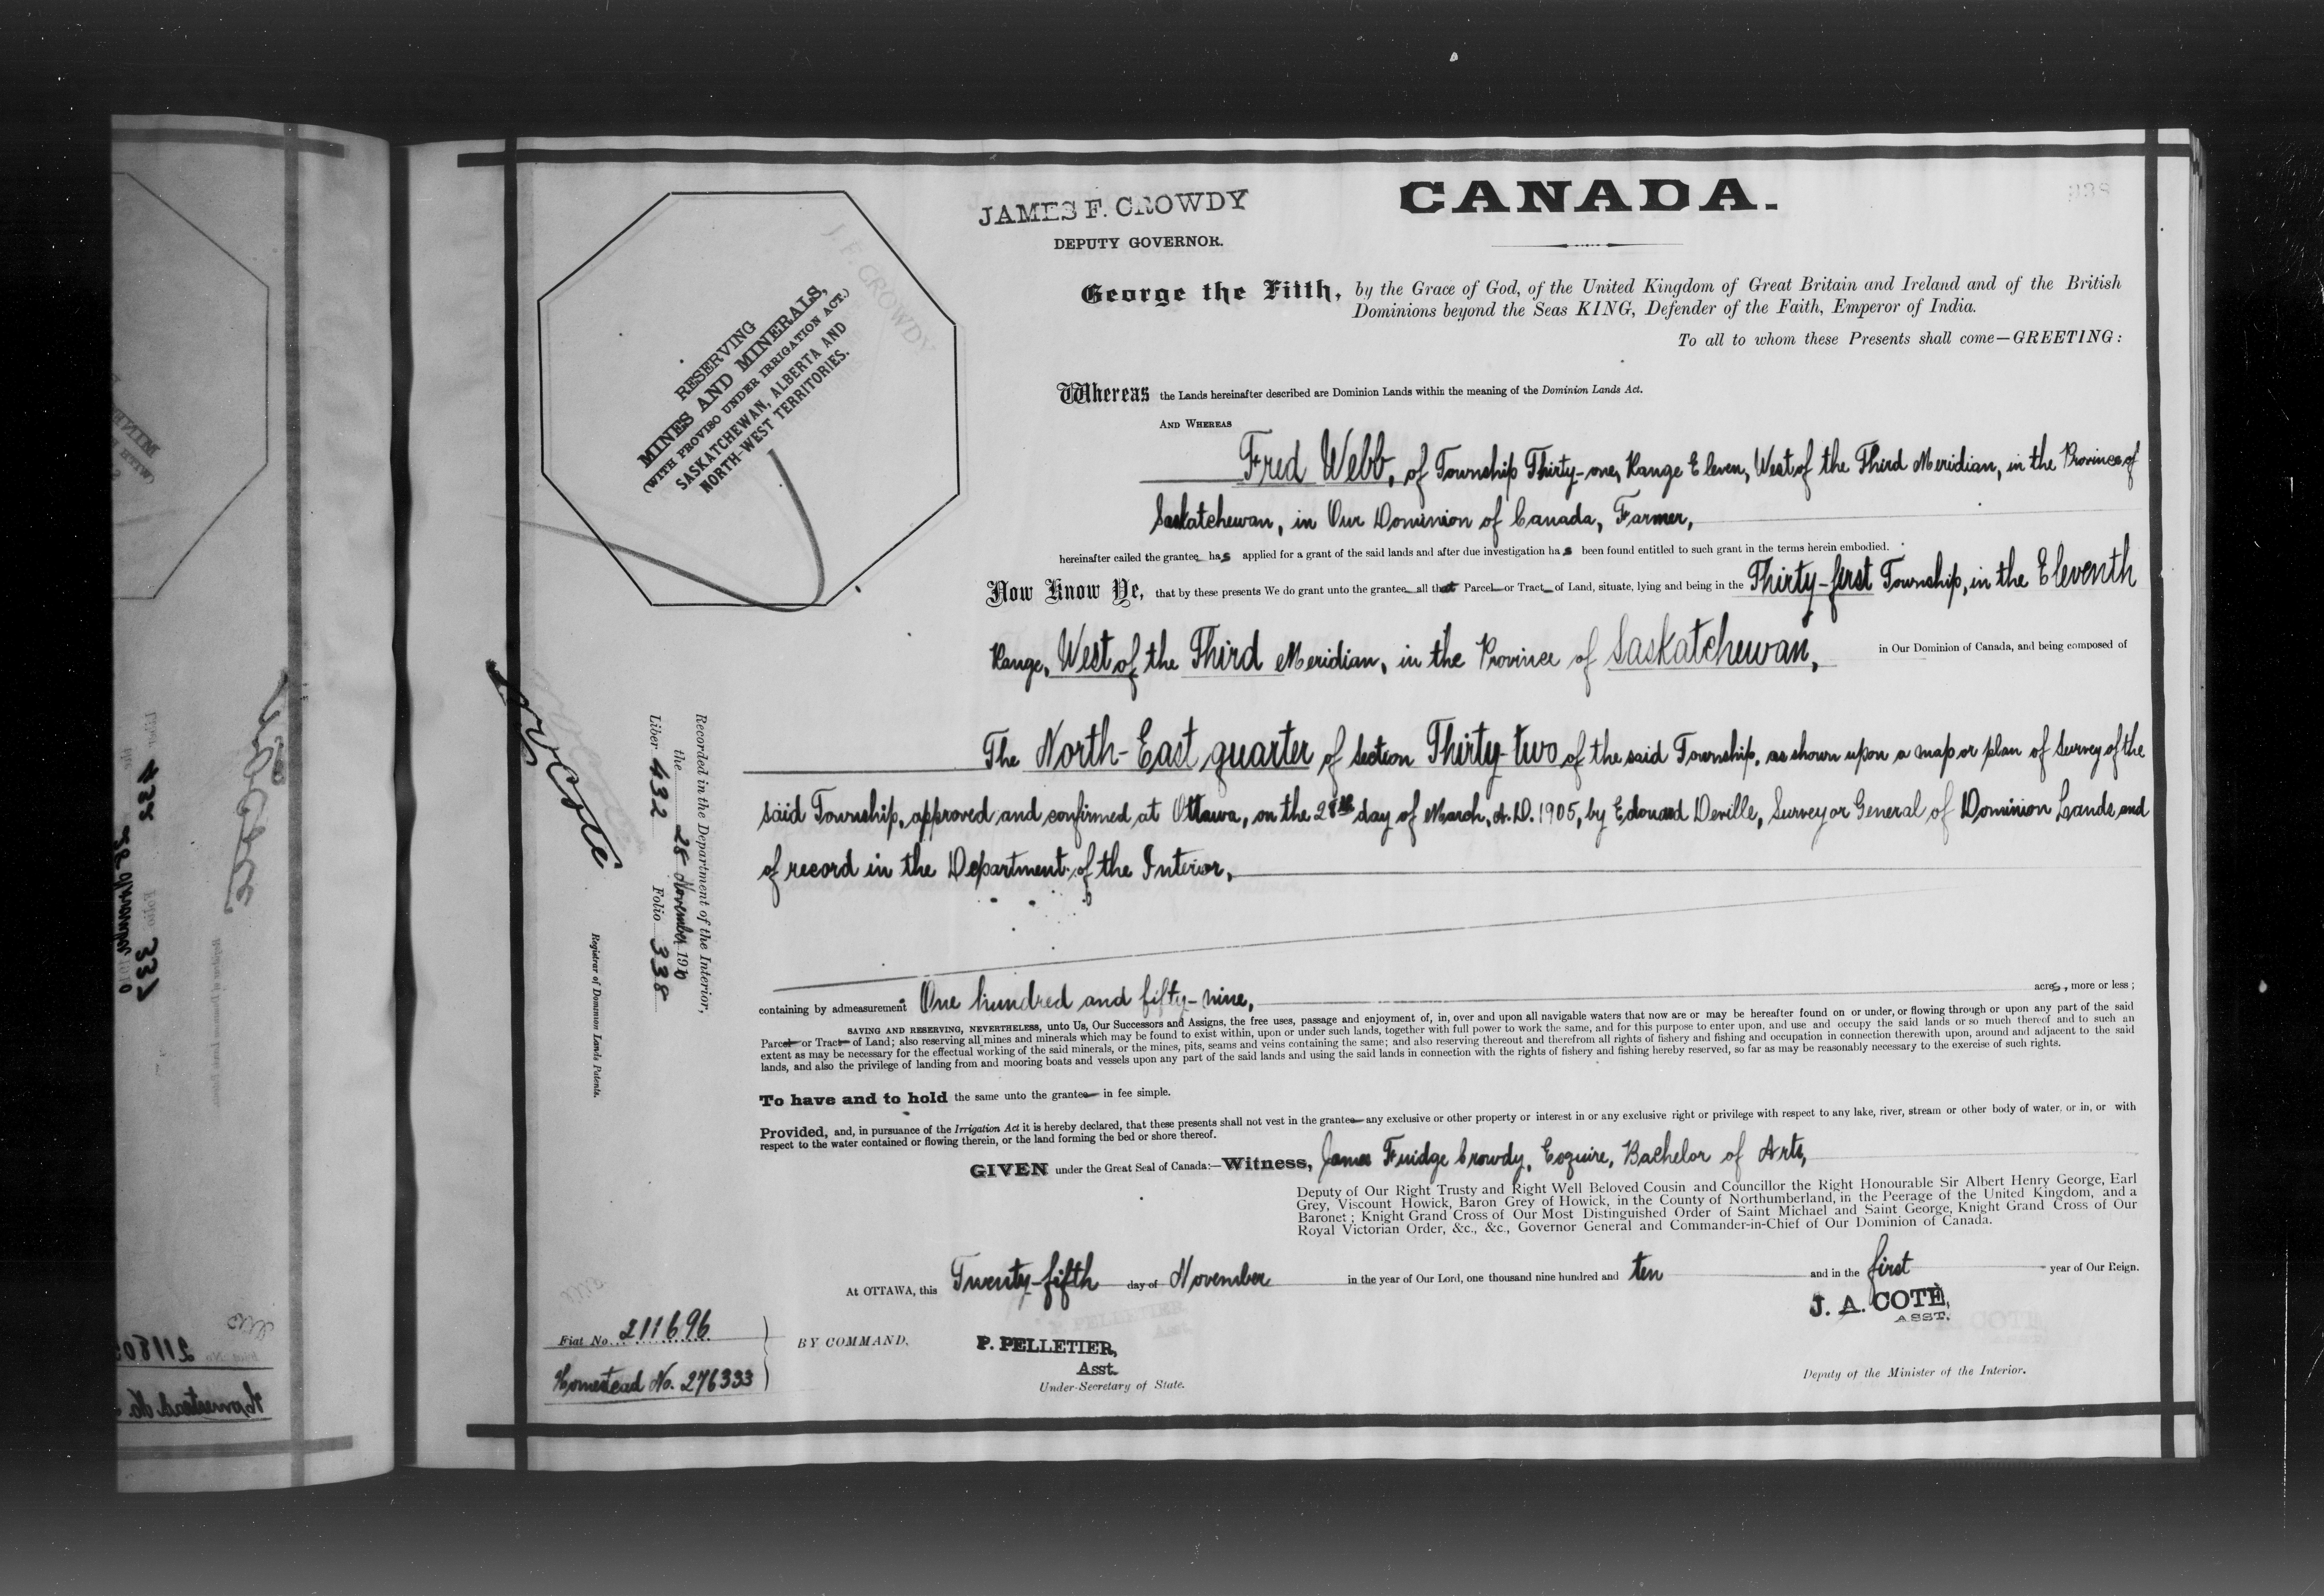 JAMES F. CROWDY
DEPUTY GOVERNOR.
CANADA.
338
RESERVING
MINES AND MINERALS,
(WITH PROVISO UNDER IRRIGATION ACT.)
SASKATCHEWAN, ALBERTA AND
NORTH-WEST TERRITORIES.
J. F. CROWDY
George the Fifth, by the Grace of God, of the United Kingdom of Great Britain and Ireland and of the British
Dominions beyond the Seas KING, Defender of the Faith, Emperor of India.
To all to whom these Presents shall come—GREETING:
Whereas the Lands hereinafter described are Dominion Lands within the meaning of the Dominion Lands Act.
AND WHEREAS
Fred Webb, of Township Thirty-one, Range Eleven, West of the Third Meridian, in the Province of
Saskatchewan, in Our Dominion of Canada, Farmer,
hereinafter called the grantee has applied for a grant of the said lands and after due investigation has been found entitled to such grant in the terms herein embodied.
Now Know Ye, that by these presents We do grant unto the grantee all that Parcel or Tract of Land, situate, lying and being in the Thirty-first Township, in the Eleventh
Range, West of the Third Meridian, in the Province of Saskatchewan, in Our Dominion of Canada, and being composed of
The North-East quarter of Section Thirty-two of the said Township, as shown upon a map or plan of Survey of the
said Township, approved and confirmed at Ottawa, on the 28th day of March, A.D. 1905, by Edouard Deville, Surveyor General of Dominion Lands and
of record in the Department of the Interior,
containing by admeasurement One hundred and fifty-nine, acres, more or less;
SAVING AND RESERVING, NEVERTHELESS, unto Us, Our Successors and Assigns, the free uses, passage and enjoyment of, in, over and upon all navigable waters that now are or may be hereafter found on or under, or flowing through or upon any part of the said
Parcel or Tract of Land; also reserving all mines and minerals which may be found to exist within, upon or under such lands, together with full power to work the same, and for this purpose to enter upon, and use and occupy the said lands or so much thereof and to such an
extent as may be necessary for the effectual working of the said minerals, or the mines, pits, seams and veins containing the same; and also reserving thereout and therefrom all rights of fishery and fishing and occupation in connection therewith upon, around and adjacent to the said
lands, and also the privilege of landing from and mooring boats and vessels upon any part of the said lands and using the said lands in connection with the rights of fishery and fishing hereby reserved, so far as may be reasonably necessary to the exercise of such rights.
To have and to hold the same unto the grantee in fee simple.
Provided, and, in pursuance of the Irrigation Act it is hereby declared, that these presents shall not vest in the grantee any exclusive or other property or interest in or any exclusive right or privilege with respect to any lake, river, stream or other body of water, or in, or with
respect to the water contained or flowing therein, or the land forming the bed or shore thereof.
GIVEN under the Great Seal of Canada:—Witness, James Fuidge Crowdy, Esquire, Bachelor of Arts,
Deputy of Our Right Trusty and Right Well Beloved Cousin and Councillor the Right Honourable Sir Albert Henry George, Earl
Grey, Viscount Howick, Baron Grey of Howick, in the County of Northumberland, in the Peerage of the United Kingdom, and a
Baronet; Knight Grand Cross of Our Most Distinguished Order of Saint Michael and Saint George, Knight Grand Cross of Our
Royal Victorian Order, &c., &c., Governor General and Commander-in-Chief of Our Dominion of Canada.
At OTTAWA, this Twenty-fifth day of November in the year of Our Lord, one thousand nine hundred and ten and in the first year of Our Reign.
J. A. COTÉ,
ASST.
Deputy of the Minister of the Interior.
BY COMMAND,
P. PELLETIER,
Asst.
Under-Secretary of State.
Fiat No. 211696
Homestead No. 276333
Recorded in the Department of the Interior,
the 28 November 1910
Liber 432 Folio 338
Registrar of Dominion Lands Patents.